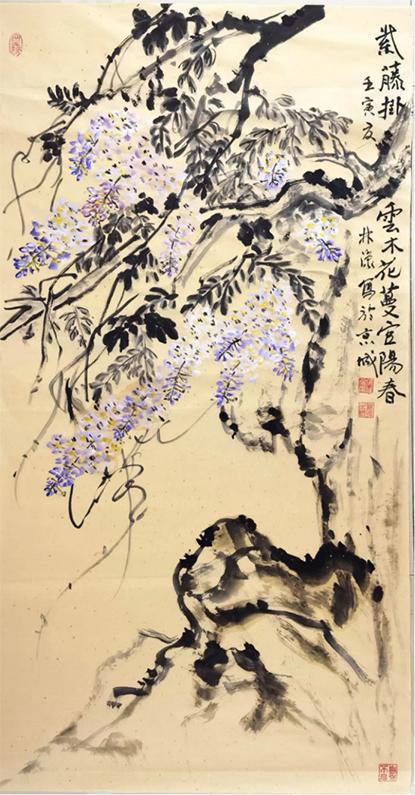 紫藤掛雲木花蔓宜陽春
壬寅夏
林溪寫於京城